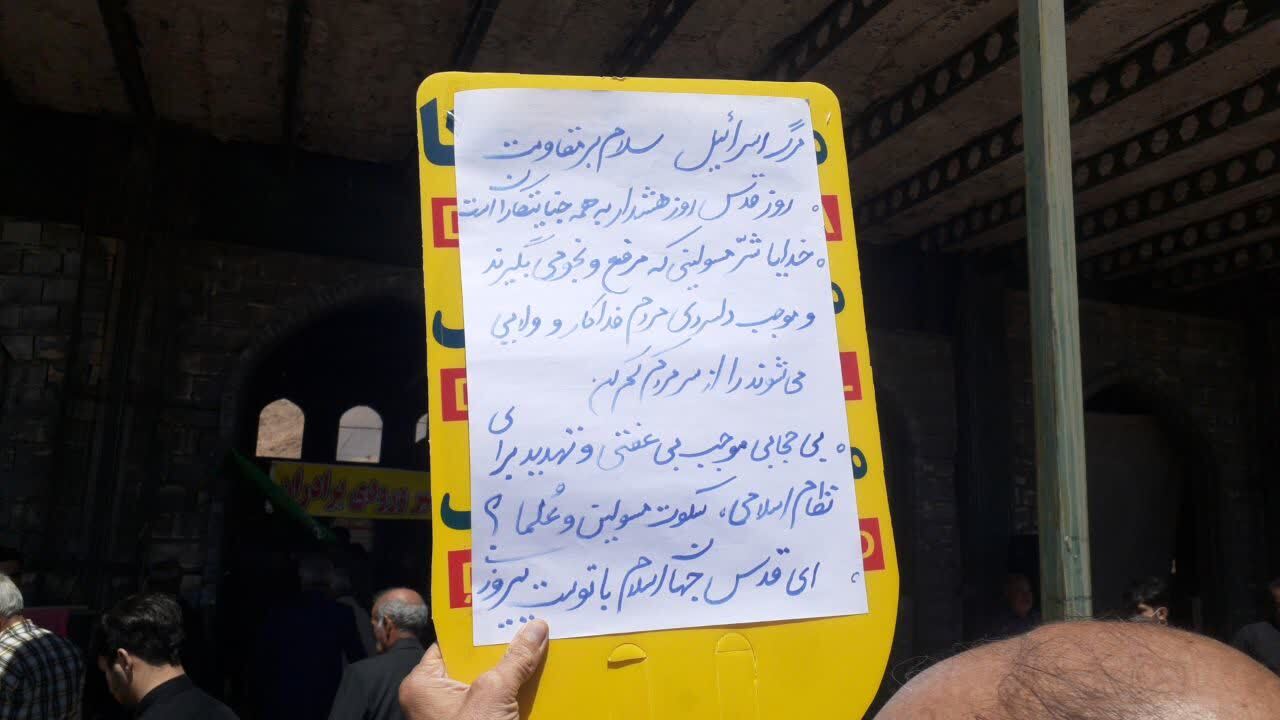 مرگ بر اسرائیل سلام بر مقاومت
روز قدس روز هشدار به همه جنایتکاران است
خدایا شرّ مسولینی که مرفع و نجومی بگیرند
و موجب دلسردی مردم فداکار و ولایی
می شوند را از سر مردم کم کن
بی حجابی موجب بی عفتی و تهدید برای
نظام اسلامی، سکوت مسولین و عُلما ؟
ای قدس جهان اسلام با توست پیروزی
ورودی برادران